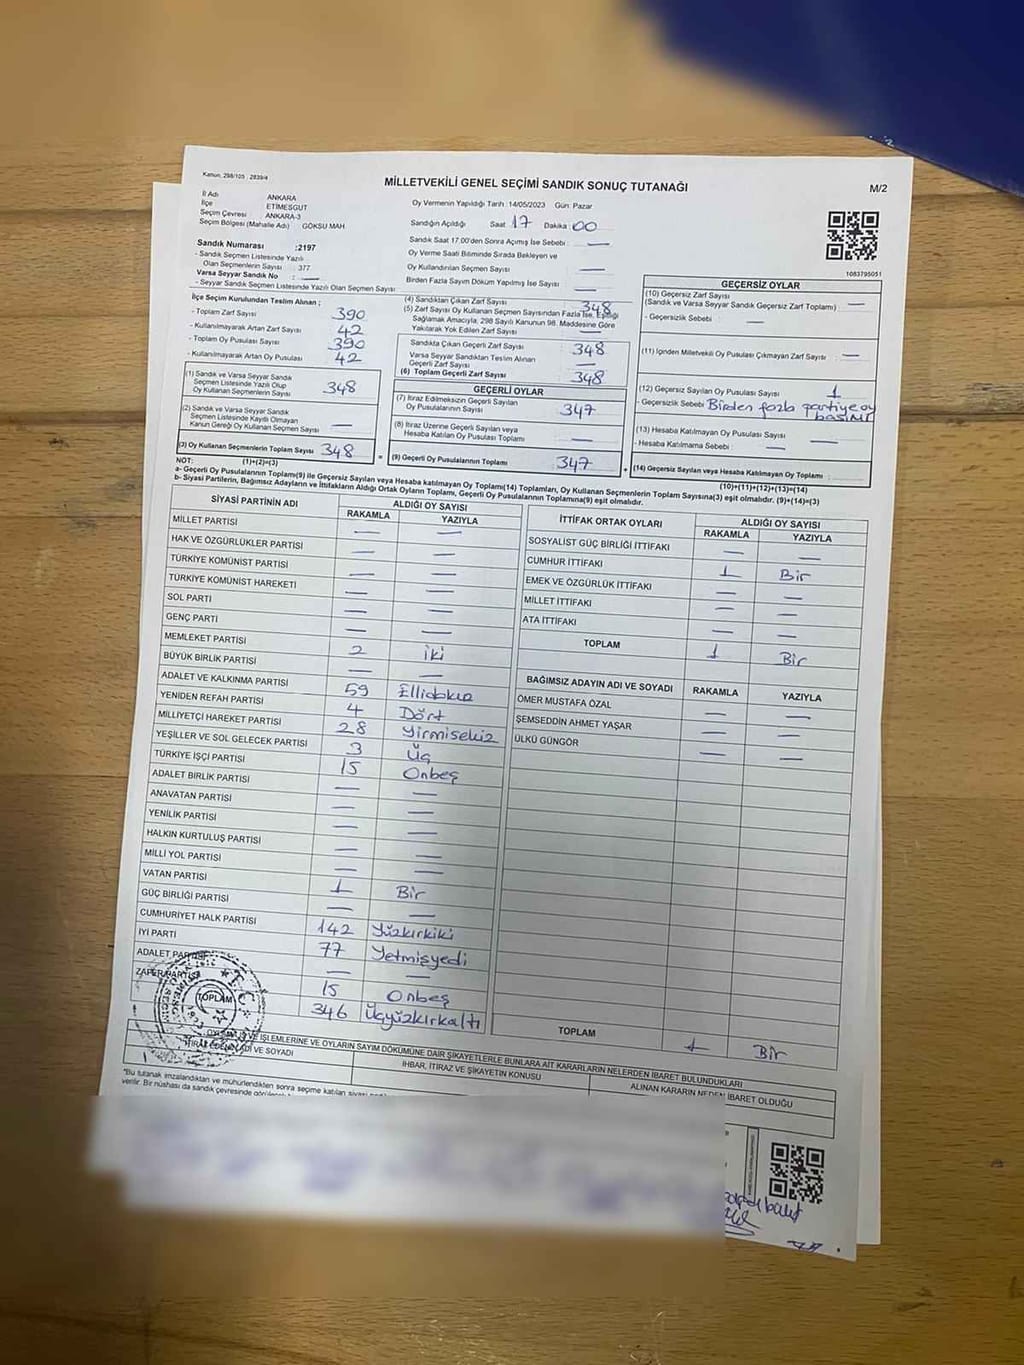 Kanun, 298/105 2839/4
MİLLETVEKİLİ GENEL SEÇİMİ SANDIK SONUÇ TUTANAĞI
M/2
İl Adı ANKARA
İlçe ETİMESGUT
Seçim Çevresi ANKARA-3
Seçim Bölgesi (Mahalle Adı) GÖKSU MAH
Sandık Numarası :2197
- Sandık Seçmen Listesinde Yazılı
Olan Seçmenlerin Sayısı : 377
Varsa Seyyar Sandık No : —
- Seyyar Sandık Seçmen Listesinde Yazılı Olan Seçmen Sayısı
Oy Vermenin Yapıldığı Tarih :14/05/2023 Gün: Pazar
Sandığın Açıldığı Saat : 17 Dakika : 00
Sandık Saat 17.00'den Sonra Açımış İse Sebebi : —
Oy Verme Saati Bitiminde Sırada Bekleyen ve
Oy Kullandırılan Seçmen Sayısı —
Birden Fazla Sayım Döküm Yapılmış İse Sayısı —
1083795051
İlçe Seçim Kurulundan Teslim Alınan ;
- Toplam Zarf Sayısı 390
- Kullanılmayarak Artan Zarf Sayısı 42
- Toplam Oy Pusulası Sayısı 390
- Kullanılmayarak Artan Oy Pusulası 42
(1) Sandık ve Varsa Seyyar Sandık
Seçmen Listesinde Yazılı Olup
Oy Kullanan Seçmenlerin Sayısı 348
(2) Sandık ve Varsa Seyyar Sandık
Seçmen Listesinde Kayıtlı Olmayan
Kanun Gereği Oy Kullanan Seçmen Sayısı —
(3) Oy Kullanan Seçmenlerin Toplam Sayısı 348
(1)+(2)=(3)
(4) Sandıktan Çıkan Zarf Sayısı 348
(5) Zarf Sayısı Oy Kullanan Seçmen Sayısından Fazla İse, Eşitliği
Sağlamak Amacıyla, 298 Sayılı Kanunun 98. Maddesine Göre
Yakılarak Yok Edilen Zarf Sayısı —
Sandıkta Çıkan Geçerli Zarf Sayısı 348
Varsa Seyyar Sandıktan Teslim Alınan
Geçerli Zarf Sayısı —
(6) Toplam Geçerli Zarf Sayısı 348
GEÇERLİ OYLAR
(7) İtiraz Edilmeksizin Geçerli Sayılan
Oy Pusulalarının Sayısı 347
(8) İtiraz Üzerine Geçerli Sayılan veya
Hesaba Katılan Oy Pusulası Toplamı —
(9) Geçerli Oy Pusulalarının Toplamı 347
GEÇERSİZ OYLAR
(10) Geçersiz Zarf Sayısı
(Sandık ve Varsa Seyyar Sandık Geçersiz Zarf Toplamı) —
- Geçersizlik Sebebi : —
(11) İçinden Milletvekili Oy Pusulası Çıkmayan Zarf Sayısı : —
(12) Geçersiz Sayılan Oy Pusulası Sayısı : 1
- Geçersizlik Sebebi : Birden fazla partiye oy
basımı
(13) Hesaba Katılmayan Oy Pusulası Sayısı : —
- Hesaba Katılmama Sebebi : —
(14) Geçersiz Sayılan veya Hesaba Katılmayan Oy Toplamı :
(10)+(11)+(12)+(13)=(14)
NOT:
a- Geçerli Oy Pusulaları Toplamı(9) ile Geçersiz Sayılan veya Hesaba Katılmayan Oy Toplamı(14) Toplamları, Oy Kullanan Seçmenlerin Toplam Sayısına(3) eşit olmalıdır. (9)+(14)=(3)
b- Siyasi Partilerin, Bağımsız Adayların ve İttifakların Aldığı Ortak Oyların Toplamı, Geçerli Oy Pusulalarının Toplamına(9) eşit olmalıdır.
SİYASİ PARTİNİN ADI ALDIĞI OY SAYISI
RAKAMLA YAZIYLA
MİLLET PARTİSİ — —
HAK VE ÖZGÜRLÜKLER PARTİSİ — —
TÜRKİYE KOMÜNİST PARTİSİ — —
TÜRKİYE KOMÜNİST HAREKETİ — —
SOL PARTİ — —
GENÇ PARTİ — —
MEMLEKET PARTİSİ 2 iki
BÜYÜK BİRLİK PARTİSİ — —
ADALET VE KALKINMA PARTİSİ 59 Ellidokuz
YENİDEN REFAH PARTİSİ 4 Dört
MİLLİYETÇİ HAREKET PARTİSİ 28 Yirmisekiz
YEŞİLLER VE SOL GELECEK PARTİSİ 3 Üç
TÜRKİYE İŞÇİ PARTİSİ 15 Onbeş
ADALET BİRLİK PARTİSİ — —
ANAVATAN PARTİSİ — —
YENİLİK PARTİSİ — —
HALKIN KURTULUŞ PARTİSİ — —
MİLLİ YOL PARTİSİ — —
VATAN PARTİSİ 1 Bir
GÜÇ BİRLİĞİ PARTİSİ — —
CUMHURİYET HALK PARTİSİ 142 Yüzkırkiki
İYİ PARTİ 77 Yetmişyedi
ADALET PARTİSİ — —
ZAFER PARTİSİ 15 Onbeş
TOPLAM 346 Üçyüzkırkaltı
İTTİFAK ORTAK OYLARI ALDIĞI OY SAYISI
RAKAMLA YAZIYLA
SOSYALİST GÜÇ BİRLİĞİ İTTİFAKI — —
CUMHUR İTTİFAKI 1 Bir
EMEK VE ÖZGÜRLÜK İTTİFAKI — —
MİLLET İTTİFAKI — —
ATA İTTİFAKI — —
TOPLAM 1 Bir
BAĞIMSIZ ADAYIN ADI VE SOYADI RAKAMLA YAZIYLA
ÖMER MUSTAFA ÖZAL — —
ŞEMSEDDİN AHMET YAŞAR — —
ÜLKÜ GÜNGÖR — —
TOPLAM 1 Bir
İŞLEMLERİNE VE OYLARIN SAYIM DÖKÜMÜNE DAİR ŞİKAYETLERLE BUNLARA AİT KARARLARIN NELERDEN İBARET BULUNDUKLARI
İTİRAZ EDENİN ADI VE SOYADI
İHBAR, İTİRAZ VE ŞİKAYETİN KONUSU
ALINAN KARARIN NEDEN İBARET OLDUĞU
"Bu tutanak imzalandıktan ve mühürlendikten sonra seçime katılan siyasi
verilir. Bir nüshası da sandık çevresinde